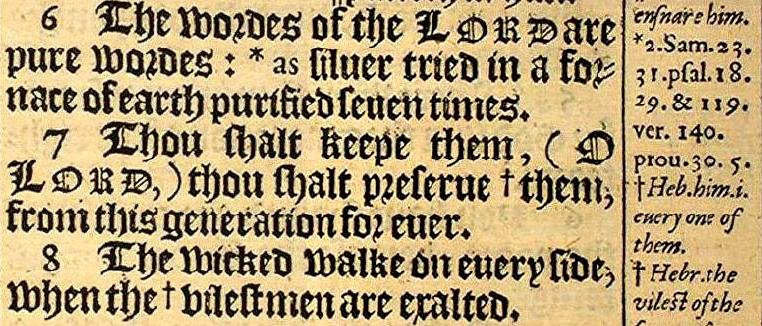 6 The wordes of the LORD are
pure wordes: * as siluer tried in a for-
nace of earth purified seuen times.
7 Thou shalt keepe them, (O
LORD,) thou shalt preserue † them,
from this generation for euer.
8 The wicked walke on euery side,
when the † vilest men are exalted.
ensnare him.
*2. Sam. 23.
31. psal. 18.
29. & 119.
ver. 140.
prou. 30. 5.
† Heb. him. i.
euery one of
them.
† Hebr. the
vilest of the